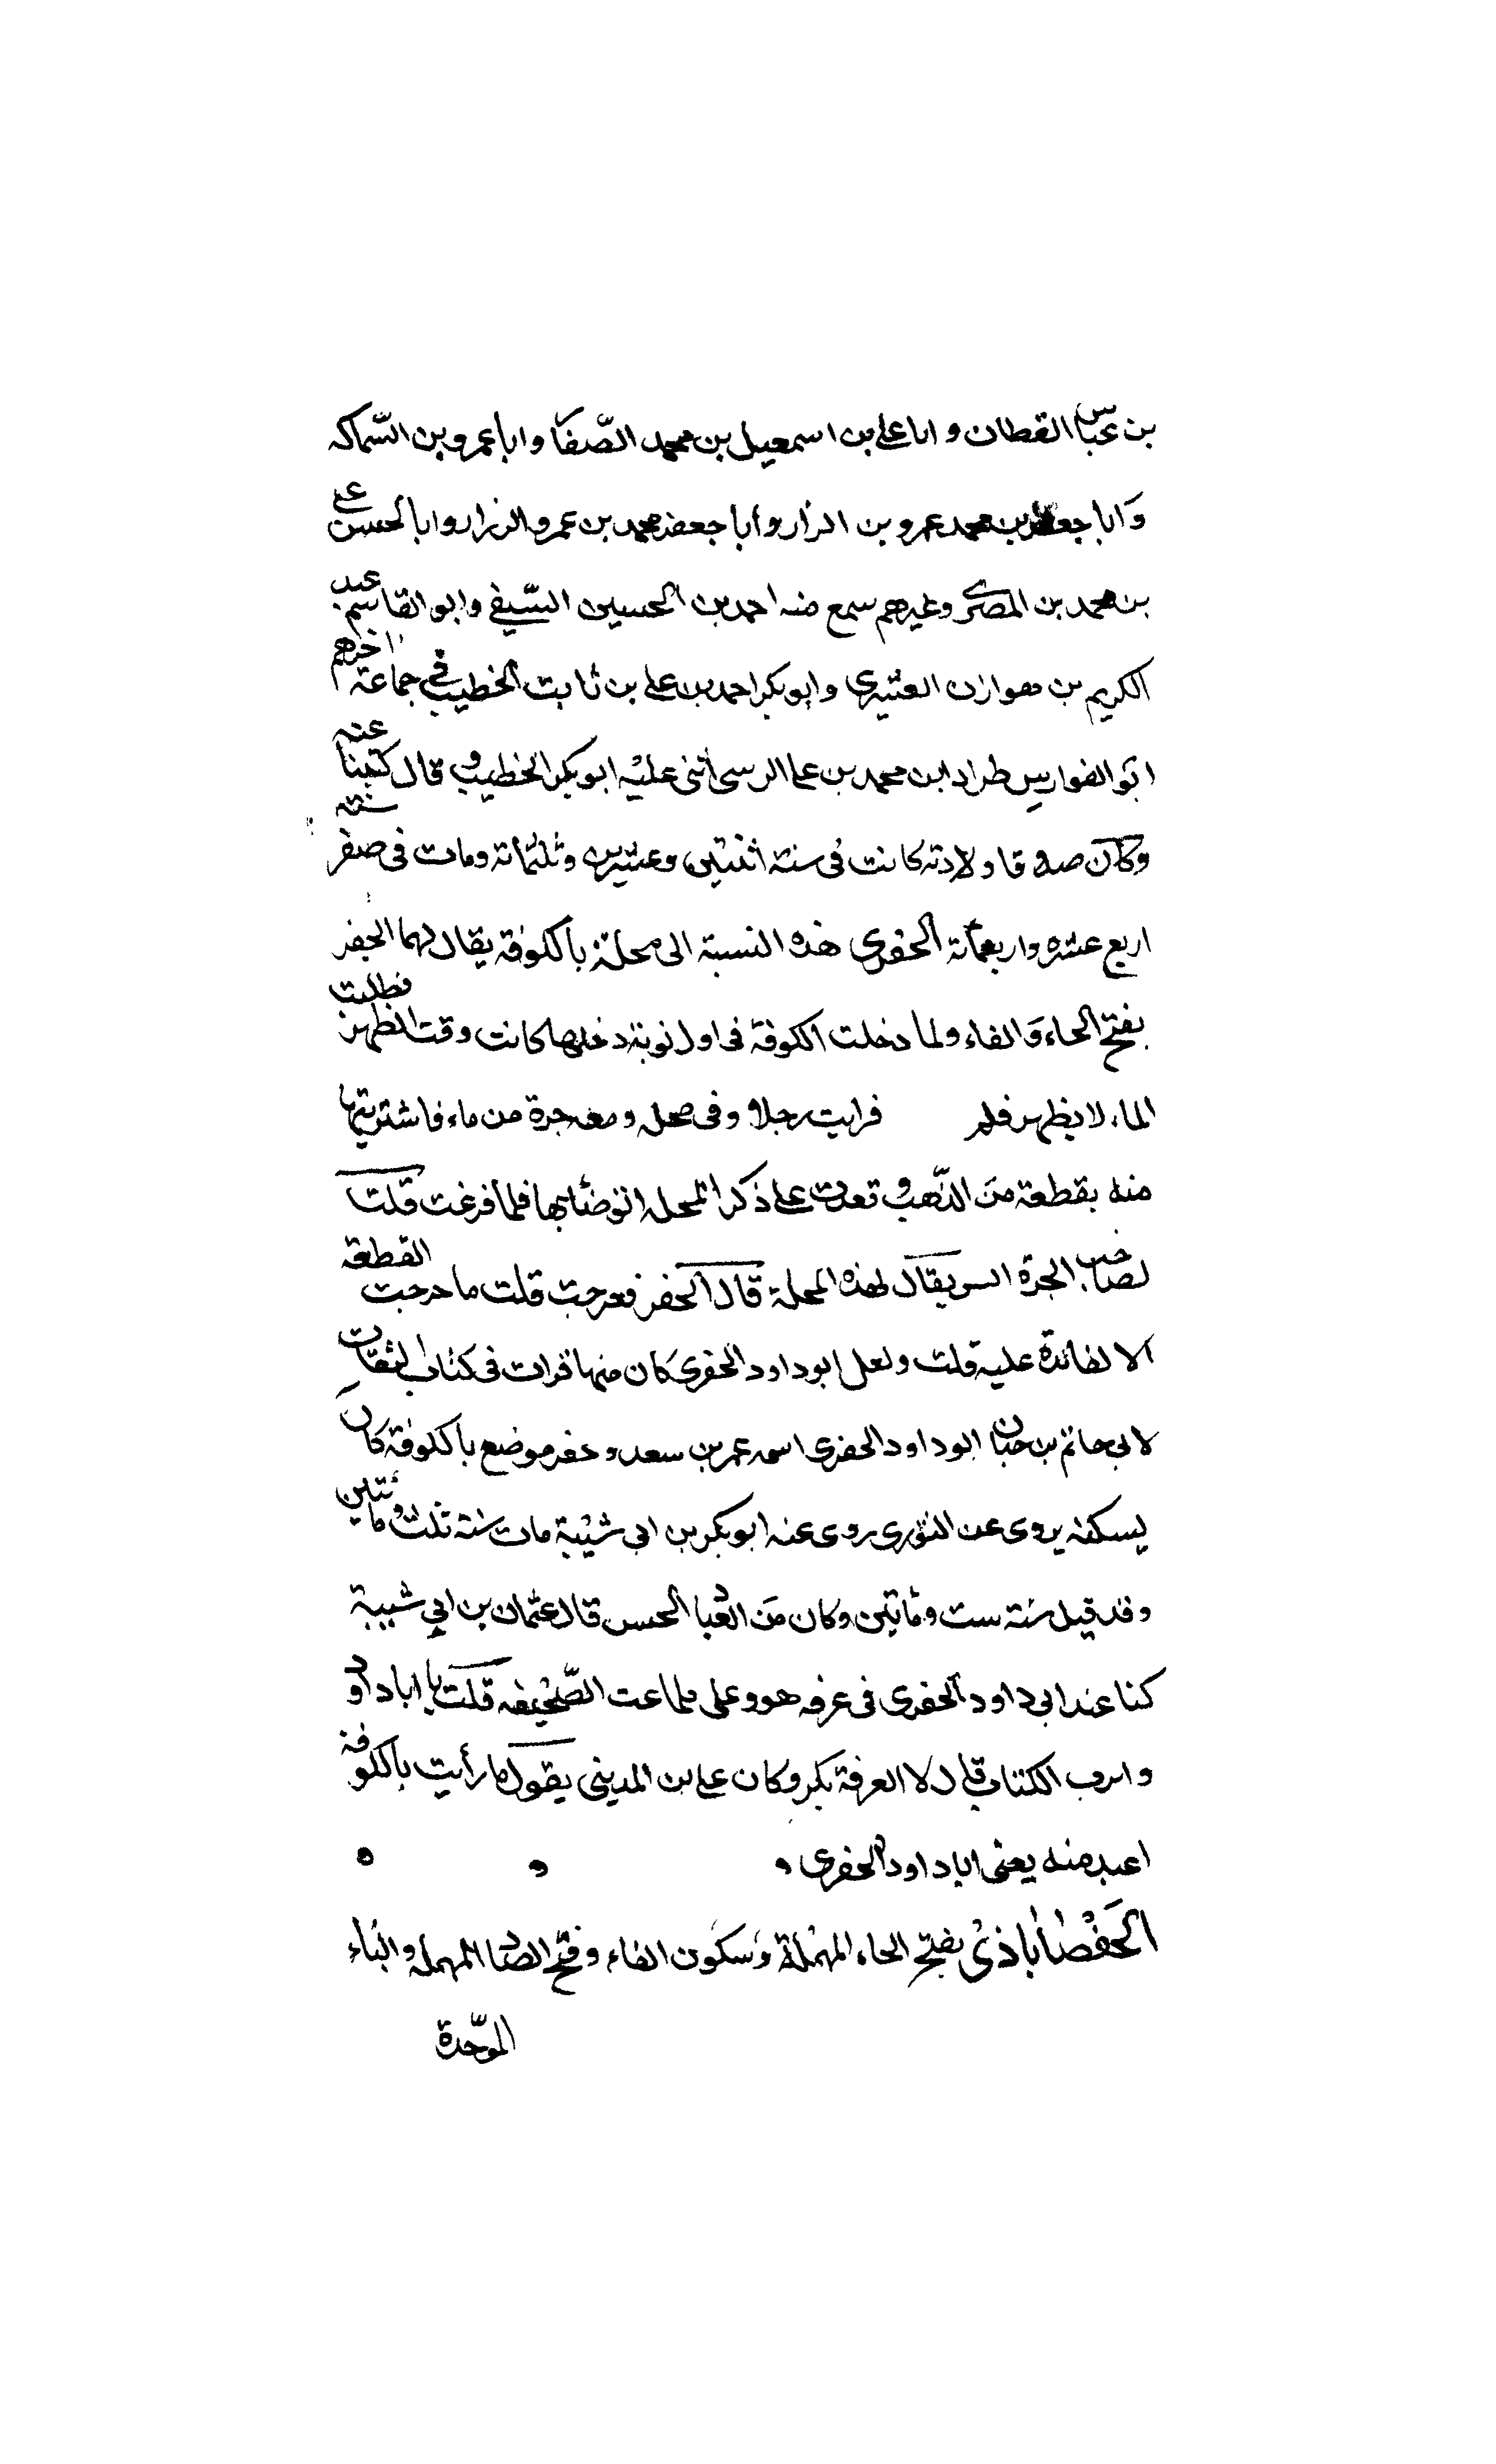 بن عباس القطان و ابا على بن اسمعيل بن محمد الصّفا وابا عمرو بن السّماك
وَابا جعفر بن محمد عمرو بن الرزار وابا جعفر محمد بن عمرو الرزار وابا الحسن على
بن محمد بن المصرى وغيرهم سمع منه احمد بن الحسين البيهقى وابو القاسم عبد
الكريم بن هوازن القشيرى وابوبكر احمد بن على بن ثابت الخطيب فى جماعة اخرهم
ابو الفوارس طراد ابن محمد بن على الرسى اثنى عليه ابوبكر الخطيب وقال كتبنا عنه
وكان صدوقا ولادته كانت فى سنة اثنتين وعشرين وثلثمائة ومات فى صفر سنة
اربع عشره واربعمائة الحفرى هذه النسبة الى محلة بالكوفة يقال لهما الحفر
بفتح الحاء وَالفاء ولما دخلت الكوفة فى اول نوبة دخلها كانت وقت الظهر فطلبت
الماء لا يظهر فلم فرايت رجلا و فى صحل ومعه جرة من ماء فاشتريتها
منه بقطعة منَ الذّهب وقعدت على ذكر المحله اتوضا بها فلما فرغت قلت
لصاحب الجرة السر يقال لهذه المحلة قال الحفر فعرجت قلت ما حرجت القطعة
الا لفائدة عليه قلت ولعل ابو داود الحفرى كان منها قرات فى كتاب الثقات
لابى حاتم بن حبان ابو داود الحفرى اسمه عمر بن سعد و حفر موضع بالكوفة كان
يسكنه يروى عن الثورى روى عنه ابوبكر بن ابى شيبة مات سنة ثلث ومائتين
وقد قيل سنة ست ومائتين وكان منَ العُباد الحسن قال عثمان بن ابى شيبة
كنا عند ابى داود الحفرى فى غرفه هو وعلى فلما عت الصّحيفه قلت يا ابا داود
و اترب الكتاب قال لا العرفة بكر وكان على بن المدينى يقول ما رأيت بالكوفة
اعبد منه يعنى ابا داود الحفرى
الحَفْصاٰباٰذىْ بفتح الحاء المهملة وَسكون الفاء وفتح الصاد المهمله والباء
الموّحدة